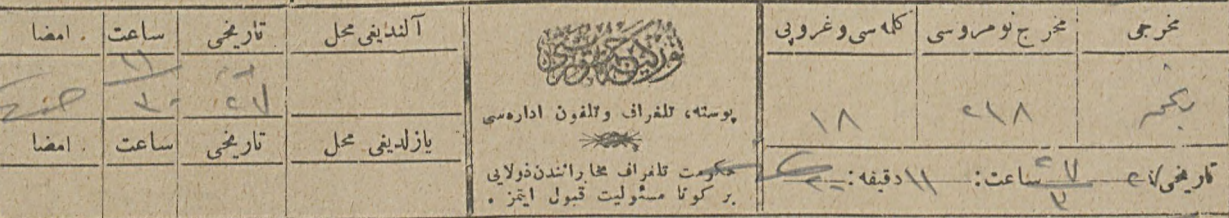 مخرجی
مخرج نومروسی
كلمه سی و غروپی
٢١٨
١٨
تاریخی: ساعت: ١١ دقیقه:
توركیه جمهوریتی
پوسته، تلغراف وتلفون اداره‌سی
حكومت تلغراف مخابراتندن دولایی
بر كونا مسئولیت قبول ایتمز .
آلندیغی محل
تاریخی
ساعت
امضا .
یازلدیغی محل
تاریخی
ساعت
امضا .